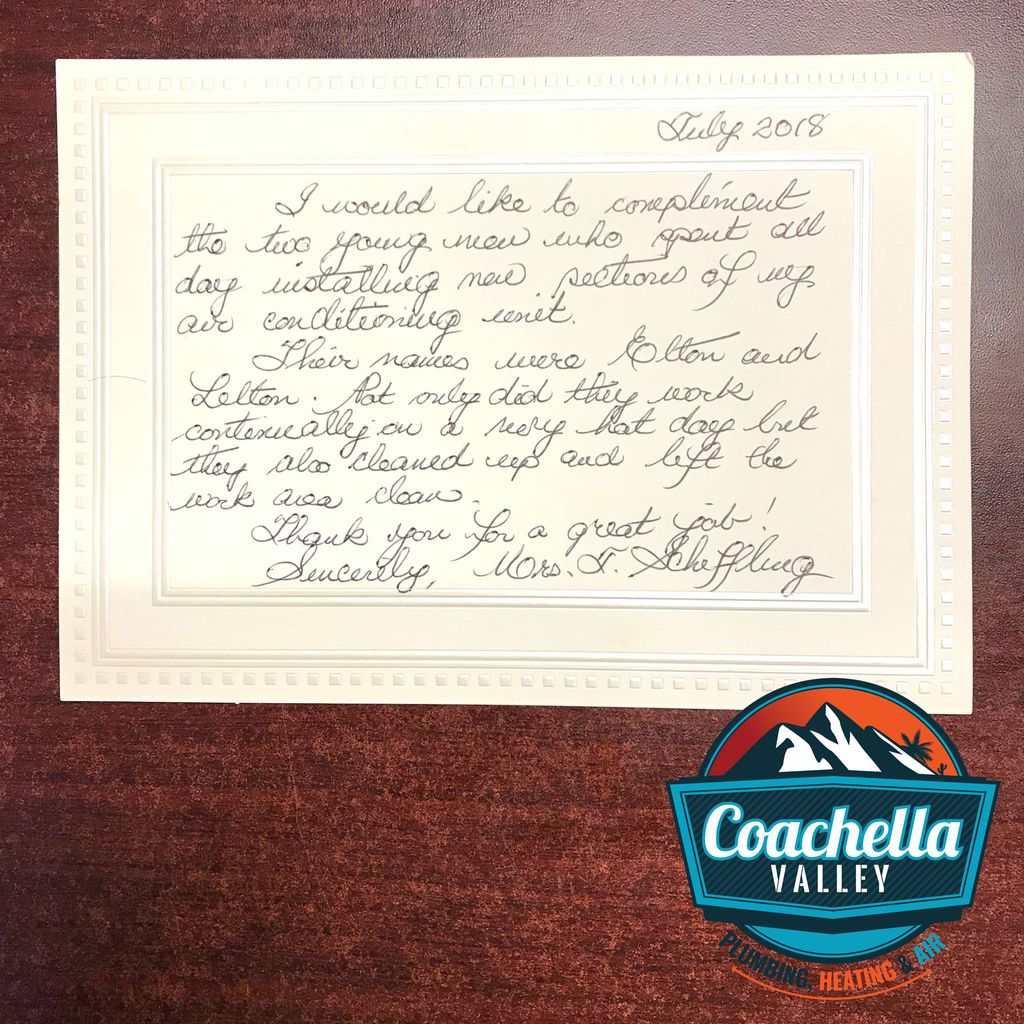 July 2018
I would like to compliment
the two young men who spent all
day installing new sections of my
air conditioning unit.
Their names were Elton and
Lelton. Not only did they work
continually on a very hot day but
they also cleaned up and left the
work area clean.
Thank you for a great job!
Sincerely, Mrs. T. Scheffling
Coachella
VALLEY
PLUMBING, HEATING & AIR